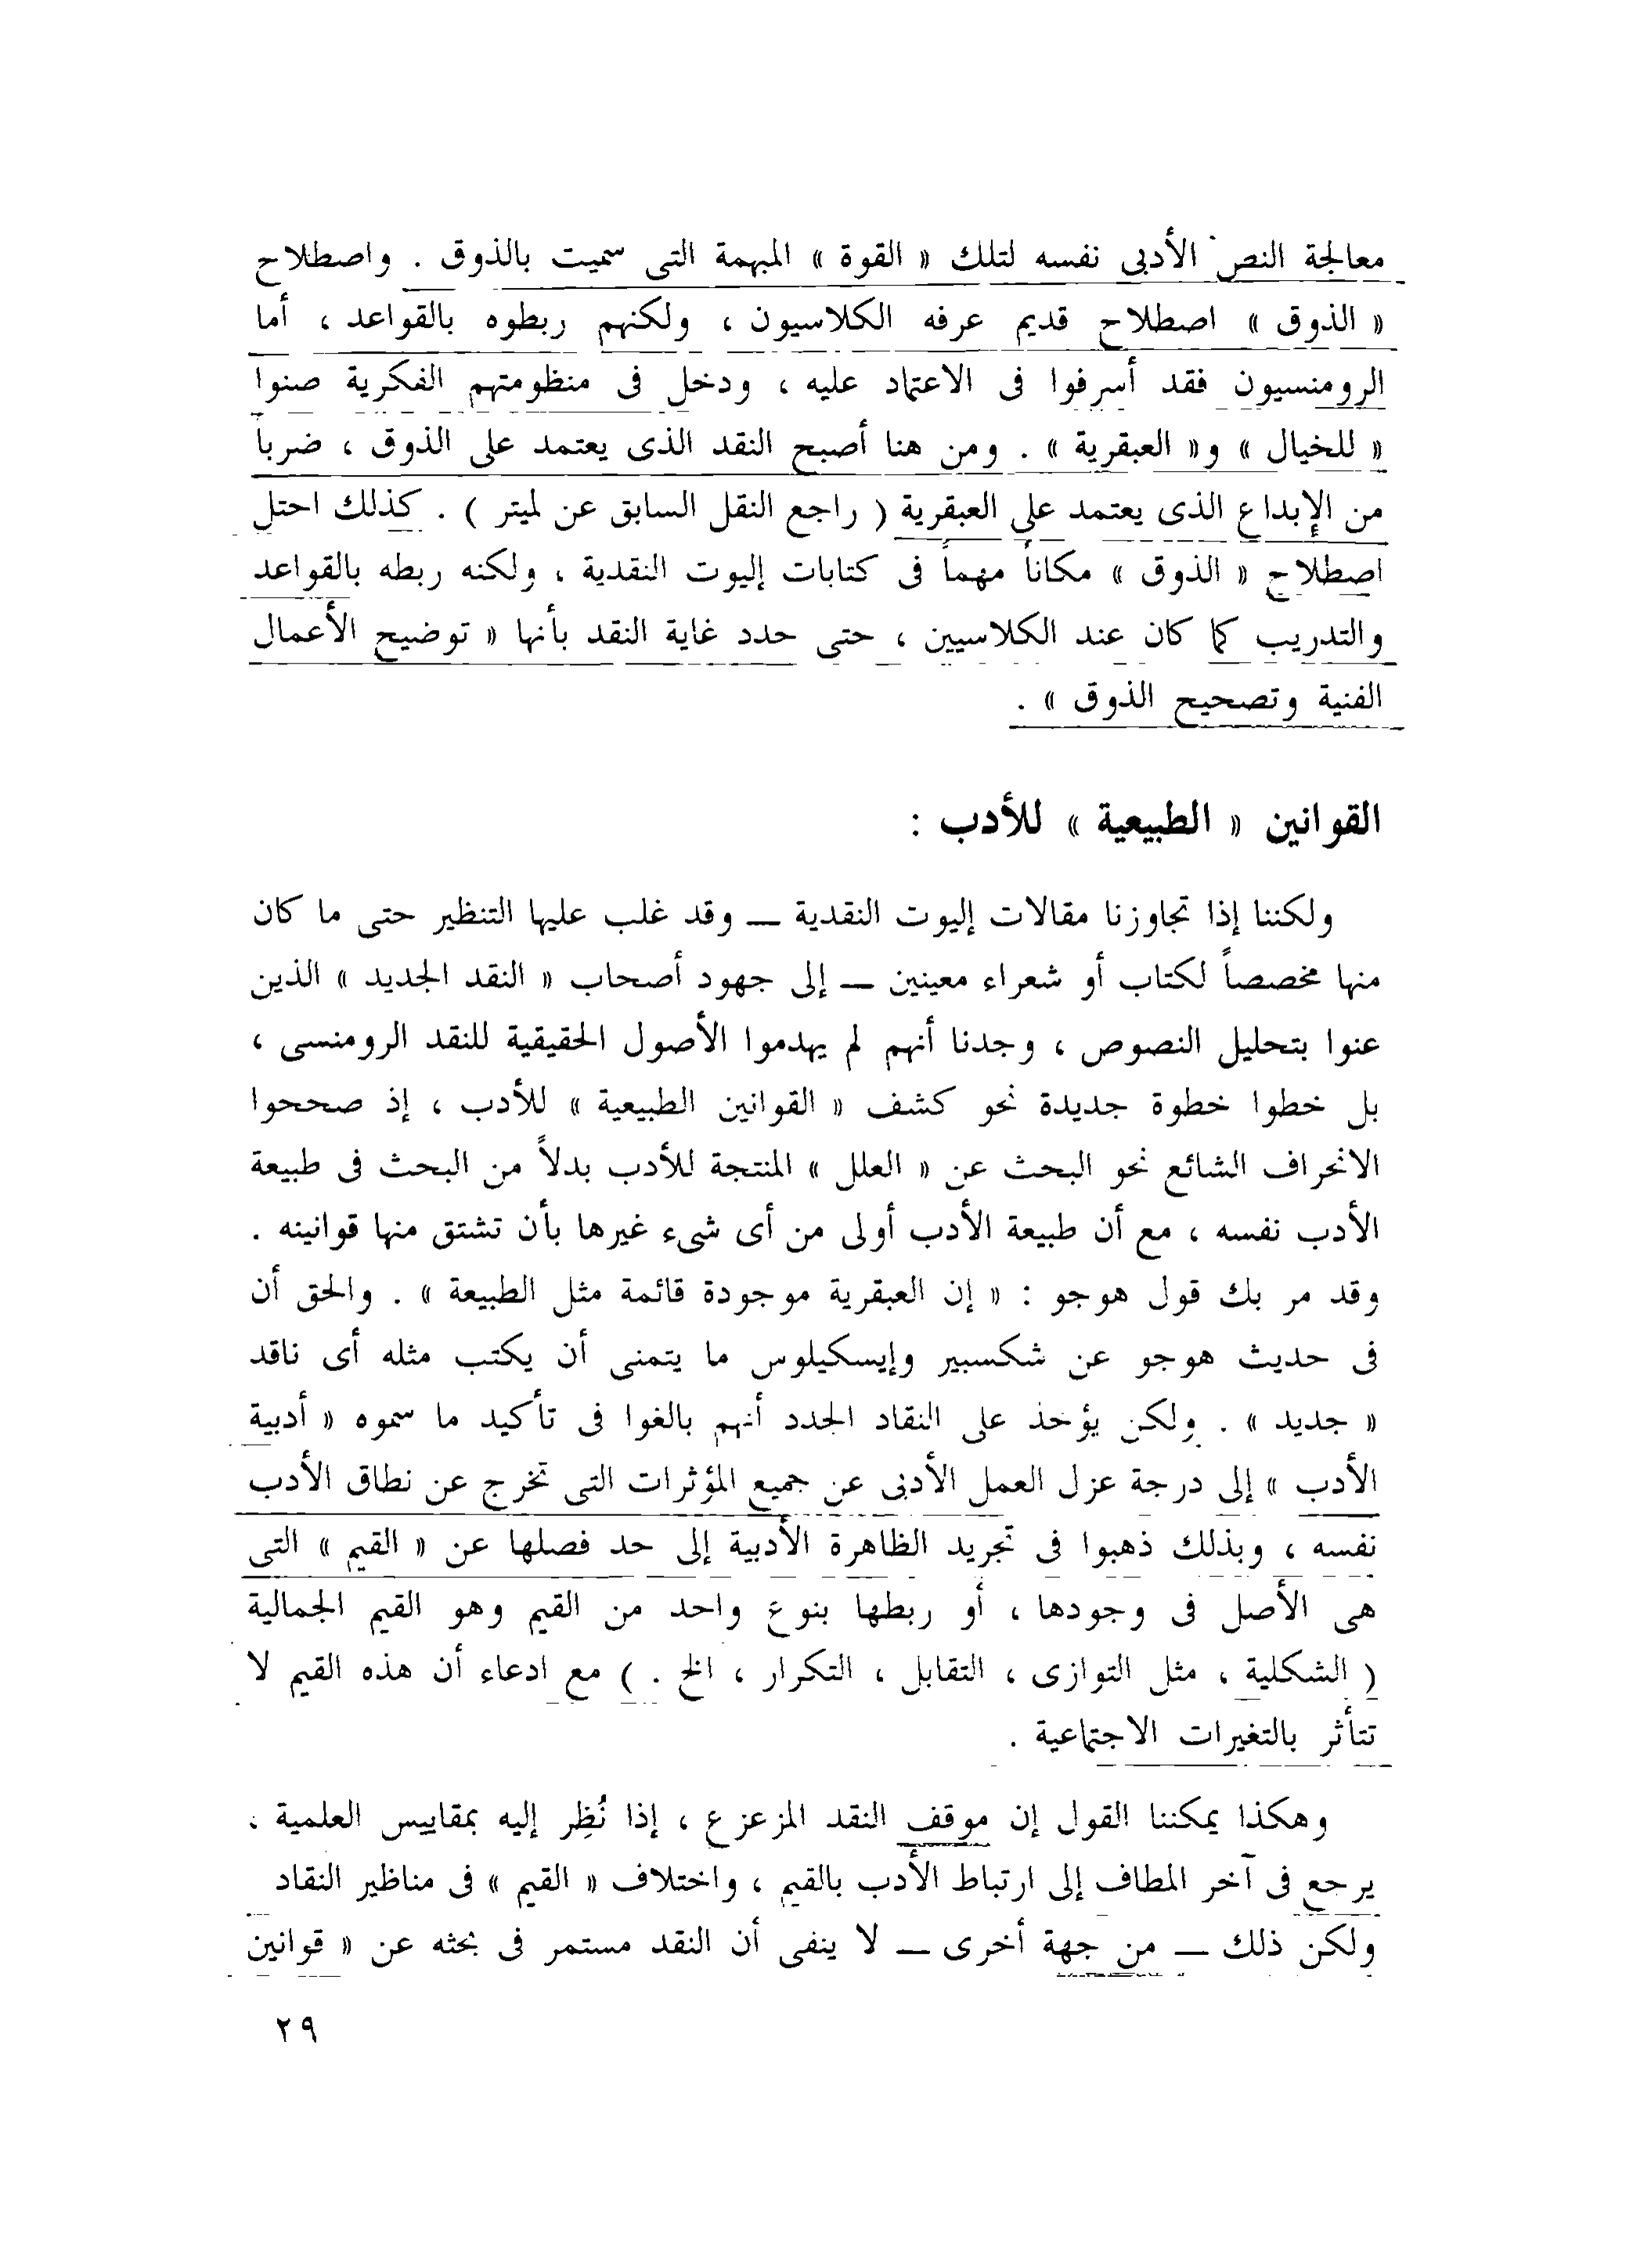 معالجة النص الأدبى نفسه لتلك « القوة » المبهمة التى سميت بالذوق . واصطلاح
« الذوق » اصطلاح قديم عرفه الكلاسيون ، ولكنهم ربطوه بالقواعد ، أما
الرومنسيون فقد أسرفوا فى الاعتماد عليه ، ودخل فى منظومتهم الفكرية صنوا
« للخيال » و« العبقرية » . ومن هنا أصبح النقد الذى يعتمد على الذوق ، ضرباً
من الإبداع الذى يعتمد على العبقرية ( راجع النقل السابق عن لميتر ) . كذلك احتل
اصطلاح « الذوق » مكاناً مهماً فى كتابات إليوت النقدية ، ولكنه ربطه بالقواعد
والتدريب كما كان عند الكلاسيين ، حتى حدد غاية النقد بأنها « توضيح الأعمال
الفنية وتصحيح الذوق » .
القوانين « الطبيعية » للأدب :
ولكننا إذا تجاوزنا مقالات إليوت النقدية ــ وقد غلب عليها التنظير حتى ما كان
منها مخصصاً لكتاب أو شعراء معينين ــ إلى جهود أصحاب « النقد الجديد » الذين
عنوا بتحليل النصوص ، وجدنا أنهم لم يهدموا الأصول الحقيقية للنقد الرومنسى ،
بل خطوا خطوة جديدة نحو كشف « القوانين الطبيعية » للأدب ، إذ صححوا
الانحراف الشائع نحو البحث عن « العلل » المنتجة للأدب بدلاً من البحث فى طبيعة
الأدب نفسه ، مع أن طبيعة الأدب أولى من أى شىء غيرها بأن تشتق منها قوانينه .
وقد مر بك قول هوجو : « إن العبقرية موجودة قائمة مثل الطبيعة » . والحق أن
فى حديث هوجو عن شكسبير وإيسكيلوس ما يتمنى أن يكتب مثله أى ناقد
« جديد » . ولكن يؤخذ على النقاد الجدد أنهم بالغوا فى تأكيد ما سموه « أدبية
الأدب » إلى درجة عزل العمل الأدبى عن جميع المؤثرات التى تخرج عن نطاق الأدب
نفسه ، وبذلك ذهبوا فى تجريد الظاهرة الأدبية إلى حد فصلها عن « القيم » التى
هى الأصل فى وجودها ، أو ربطها بنوع واحد من القيم وهو القيم الجمالية
( الشكلية ، مثل التوازى ، التقابل ، التكرار ، الخ . ) مع ادعاء أن هذه القيم لا
تتأثر بالتغيرات الاجتماعية .
وهكذا يمكننا القول إن موقف النقد المزعزع ، إذا نُظِر إليه بمقاييس العلمية ،
يرجع فى آخر المطاف إلى ارتباط الأدب بالقيم ، واختلاف « القيم » فى مناظير النقاد
ولكن ذلك ــ من جهة أخرى ــ لا ينفى أن النقد مستمر فى بحثه عن « قوانين
٢٩